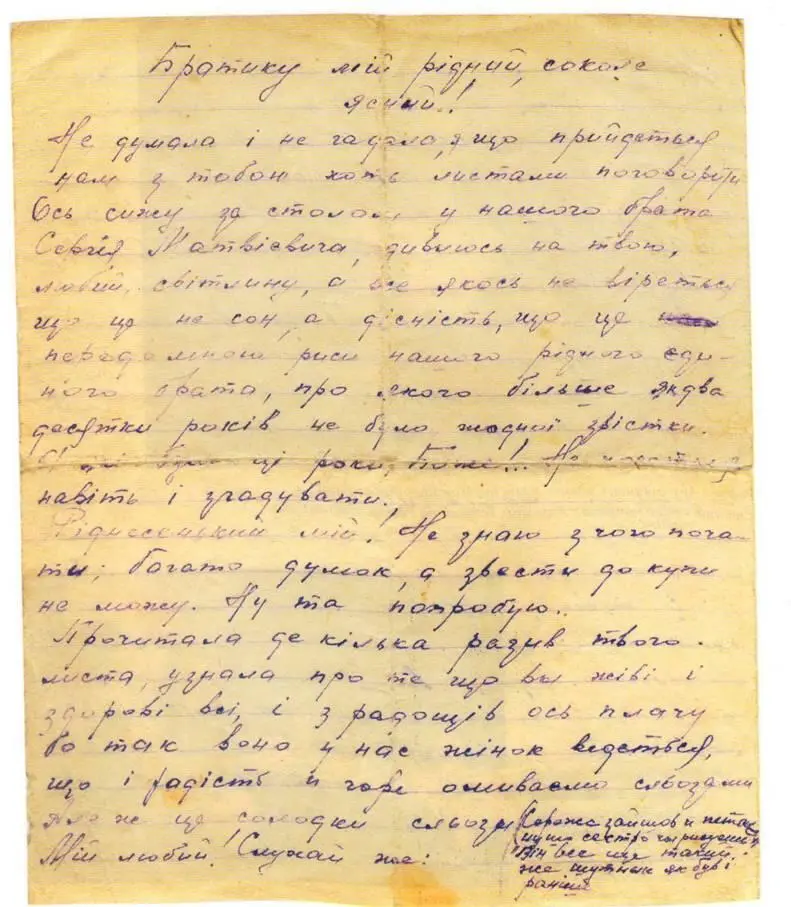 Братику мій рідний, соколе
ясний!
Не думала і не гадала, що прийдеться
нам з тобою хоть листами поговорити
Ось сижу за столом у нашого брата
Сергія Матвієвича, дивлюсь на твою,
любий, світлину, а все якось не віреться
що це не сон, а дісність, що це
передомною риси нашого рідного єди-
ного брата, про якого більше як два
десятки років не було жодної звістки.
А які були ці роки, Боже!.. Не
навіть і згадувати.
Ріднесенький мій! Не знаю з чого поча-
ти; богато думок, а звести до купи
не можу. Ну та попробую..
Прочитала де кілька разив твого
листа, узнала про те що вы жіві і
здорові всі, і з радощів ось плачу
бо так воно у нас жінок ведеться,
що і радість и горе омиваємо сльозами
Але ж це солодки сльози
Мій любий! Слухай же:
Сережа зайшов и пита
ну що сестро
Він все ще такий
же шутник як був і
раніше